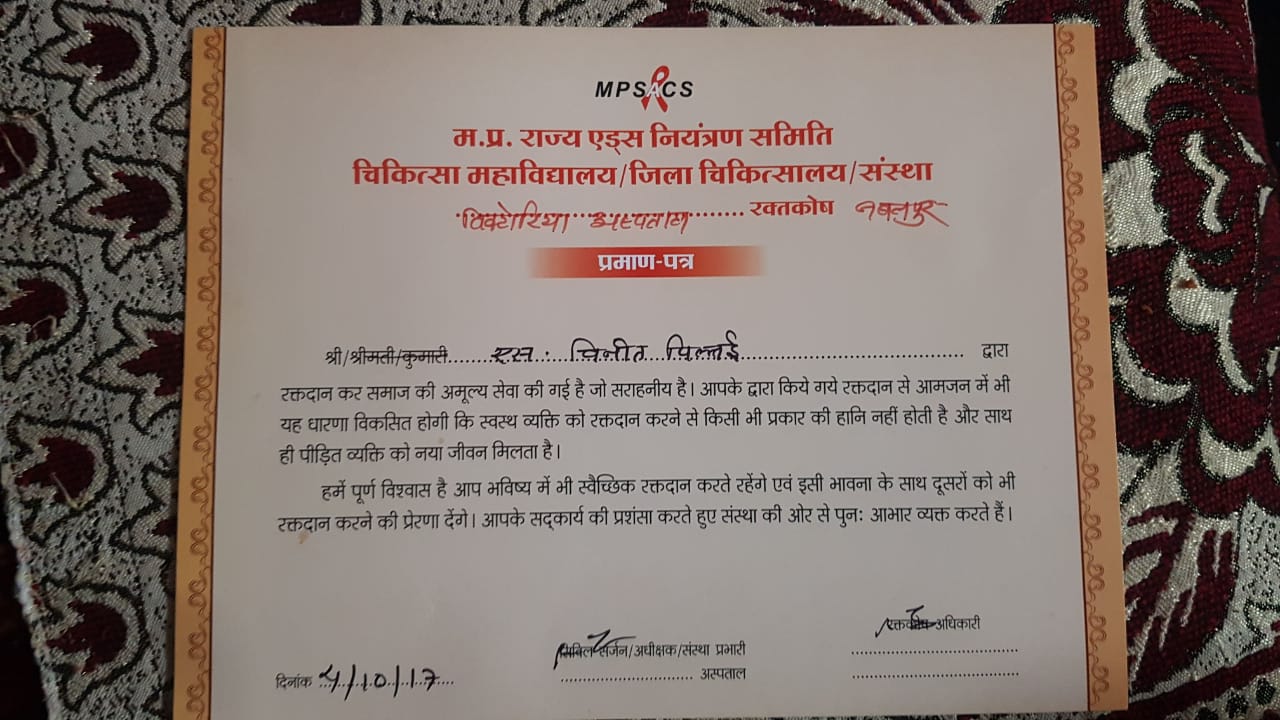 MPSACS
म.प्र. राज्य एड्स नियंत्रण समिति
चिकित्सा महाविद्यालय/जिला चिकित्सालय/संस्था
विक्टोरिया अस्पताल........ रक्तकोष जबलपुर
प्रमाण-पत्र
श्री/श्रीमती/कुमारी........ एस. विनीत पिल्लई ........ द्वारा
रक्तदान कर समाज की अमूल्य सेवा की गई है जो सराहनीय है। आपके द्वारा किये गये रक्तदान से आमजन में भी
यह धारणा विकसित होगी कि स्वस्थ व्यक्ति को रक्तदान करने से किसी भी प्रकार की हानि नहीं होती है और साथ
ही पीड़ित व्यक्ति को नया जीवन मिलता है।
हमें पूर्ण विश्वास है आप भविष्य में भी स्वैच्छिक रक्तदान करते रहेंगे एवं इसी भावना के साथ दूसरों को भी
रक्तदान करने की प्रेरणा देंगे। आपके सद्कार्य की प्रशंसा करते हुए संस्था की ओर से पुनः आभार व्यक्त करते हैं।
रक्तकोष अधिकारी
सिविल सर्जन/अधीक्षक/संस्था प्रभारी
........ अस्पताल
दिनांक 4/10/17